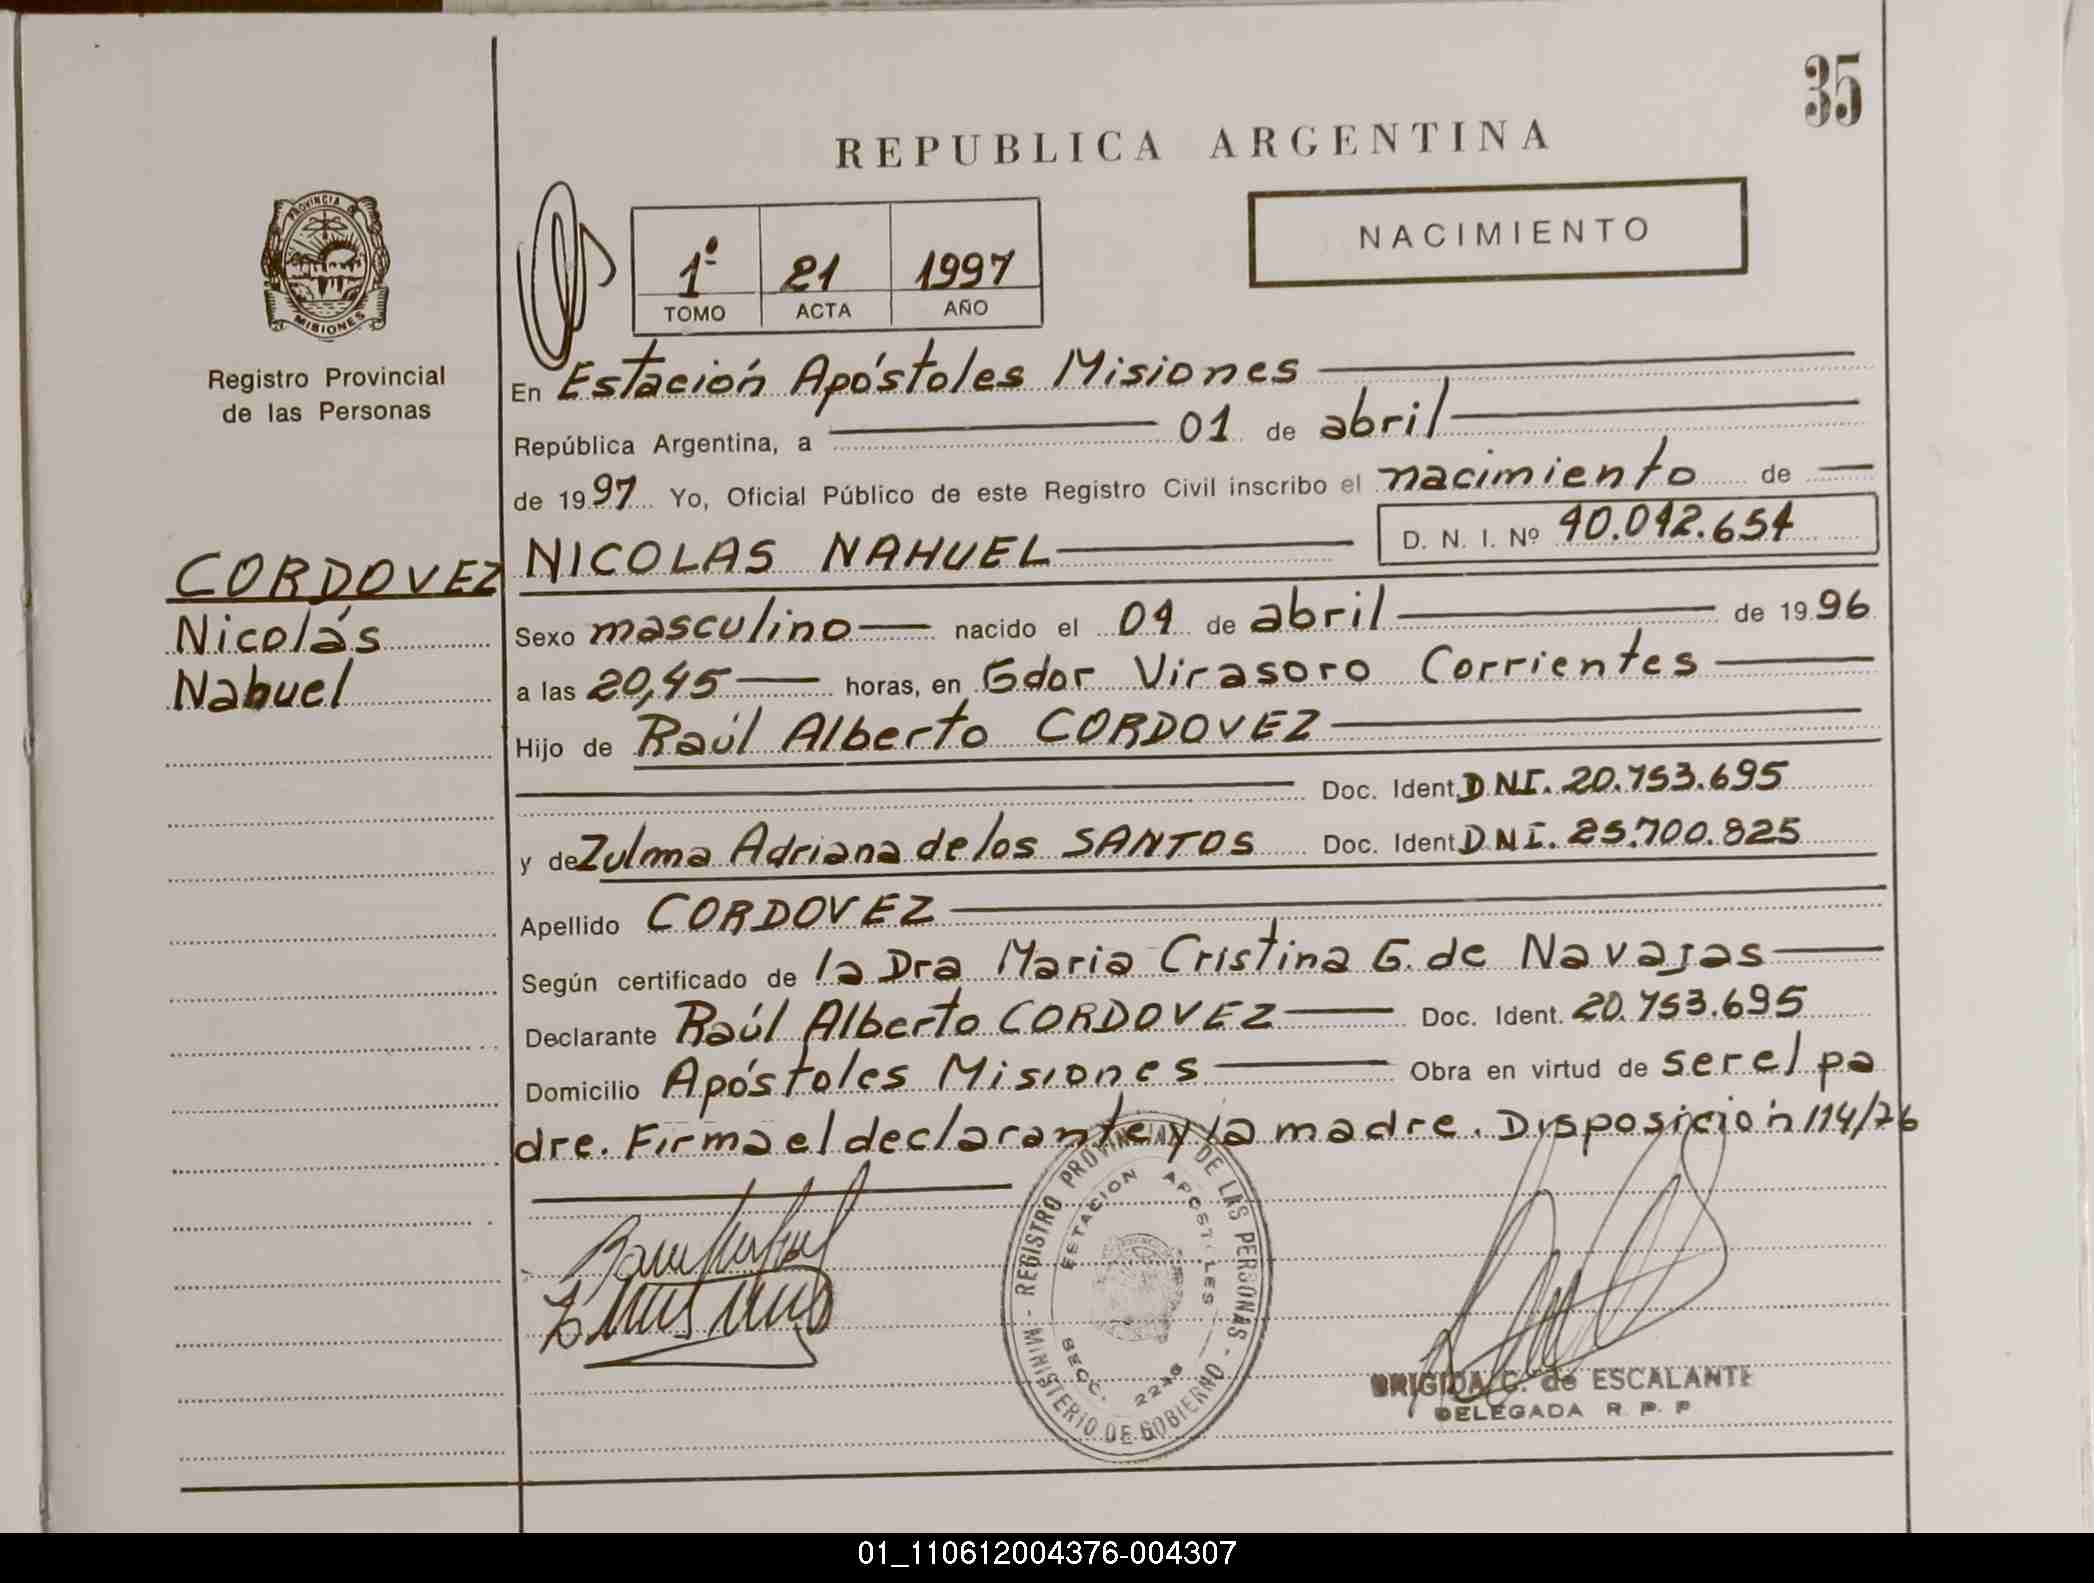 35
REPUBLICA ARGENTINA
NACIMIENTO
PROVINCIA DE
MISIONES
Registro Provincial
de las Personas
1º 21 1997
TOMO ACTA AÑO
En Estación Apóstoles Misiones
República Argentina, a 01 de abril
de 1997 Yo, Oficial Público de este Registro Civil inscribo el nacimiento de
CORDOVEZ
Nicolás
Nahuel
NICOLAS NAHUEL D. N. I. Nº 40.042.654
Sexo masculino nacido el 04 de abril de 1996
a las 20,45 horas, en Gdor Virasoro Corrientes
Hijo de Raúl Alberto CORDOVEZ
Doc. Ident. DNI. 20.753.695
y de Zulma Adriana de los SANTOS Doc. Ident. DNI. 25.700.825
Apellido CORDOVEZ
Según certificado de la Dra Maria Cristina G. de Navajas
Declarante Raúl Alberto CORDOVEZ Doc. Ident. 20.753.695
Domicilio Apóstoles Misiones Obra en virtud de ser el pa
dre. Firma el declarante y la madre. Disposición 114/76
- REGISTRO PROVINCIAL DE LAS PERSONAS - MINISTERIO DE GOBIERNO
ESTACION APOSTOLES
SECC. 2246
BRIGIDA C. de ESCALANTE
DELEGADA R. P. P.
01_110612004376-004307